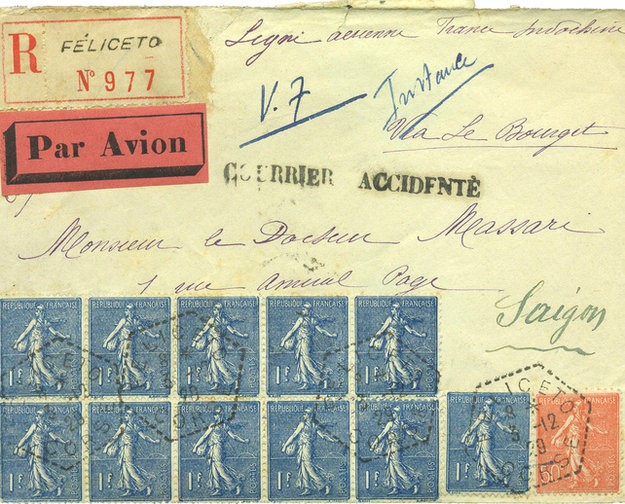 R
FÉLICETO
Nº 977
Par Avion
Ligne aérienne France Indochine
V. 7
Instance
Via Le Bourget
COURRIER ACCIDENTÈ
Monsieur le Docteur Massari
1 rue Amiral Page
Saïgon
RÉPUBLIQUE FRANÇAISE RÉPUBLIQUE FRANÇAISE RÉPUBLIQUE FRANÇAISE RÉPUBLIQUE FRANÇAISE RÉPUBLIQUE FRANÇAISE
1F 1F 1F 1F 1F
RÉPUBLIQUE FRANÇAISE RÉPUBLIQUE FRANÇAISE RÉPUBLIQUE FRANÇAISE RÉPUBLIQUE FRANÇAISE RÉPUBLIQUE FRANÇAISE RÉPUBLIQUE FRANÇAISE RÉPUBLIQUE FRANÇAISE
1F 1F 1F 1F 1F 1F 50c
FELICETO
-12
29
CORSE